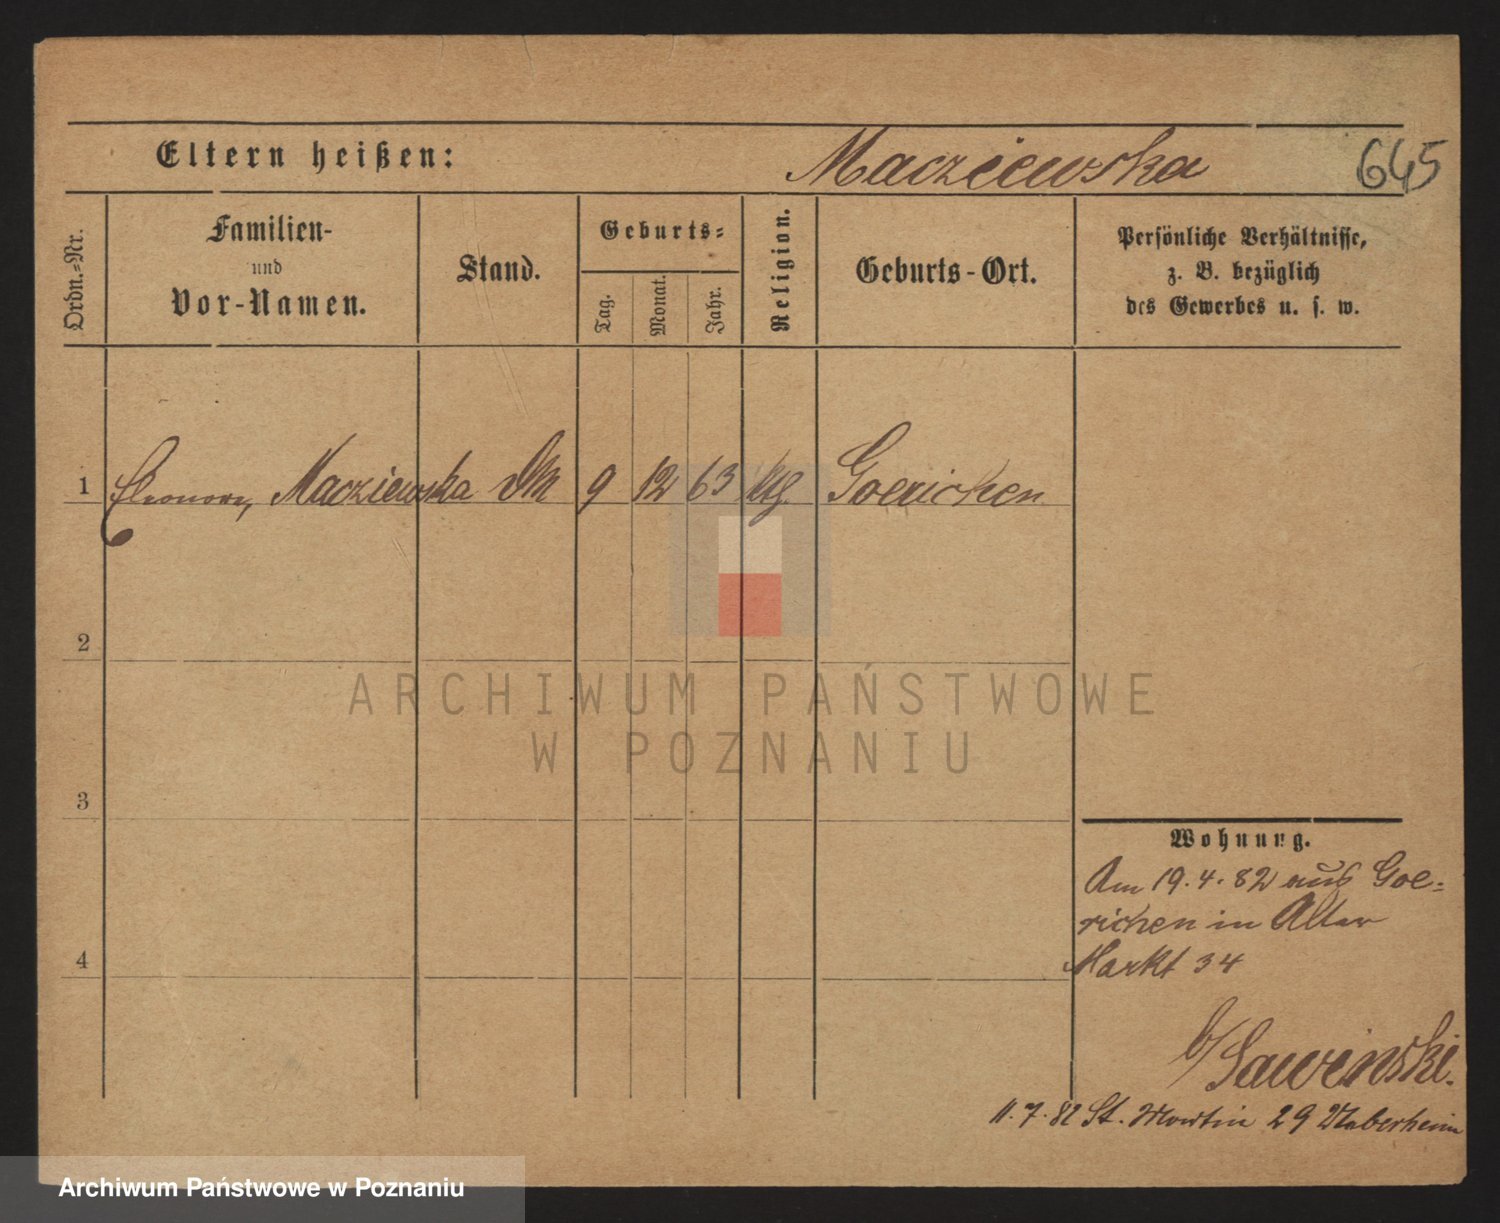 Eltern heißen: Macziewska 645
Ordn.-Nr.
Familien-
und
Vor-Namen.
Stand.
Geburts-
Tag.
Monat.
Jahr.
Religion.
Geburts-Ort.
Persönliche Verhältnisse,
z. B. bezüglich
des Gewerbes u. s. w.
1 Eleonore, Macziewska 9 12 63 ktl. Goerichen
2
3
4
Wohnung.
Am 19.4.82 aus Goe-
richen in Alter
Markt 34
b/ Sawinski.
11.7.82 St. Martin 29
ARCHIWUM PAŃSTWOWE
W POZNANIU
Archiwum Państwowe w Poznaniu